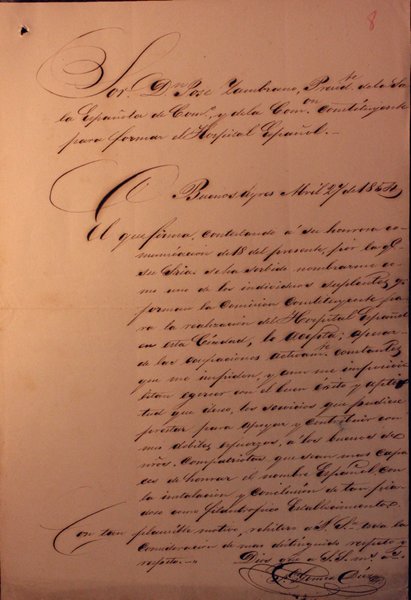 8
Sor. Dn. Jose Zambrano, Presidte. de la Sa
la Española de Como. y de la Comon. Constituyente
para formar el Hospital Español.
Buenos Ayres Abril 27 de 1852
El que firma, contestando á su honrosa co
municacion de 18 del presente, por la q.e
su Sria. se ha servido nombrarme co
mo uno de los individuos suplentes q.
forman la Comision Constituyente pa
ra la realizacion del Hospital Español
en esta Ciudad; la acepta; apesar
de las ocupaciones constantes
que me impiden, y aun me imposibi
litan egercer con el buen exito y apti
tud que deseo, los servicios que pudiese
prestar para apoyar y contribuir con
mis debiles esfuerzos, á los buenos de
mas Compatriotas que sean mas capa
ces de honrar el nombre Español con
la instalacion y conclusion de tan pia
doso como filantropico Establecimiento.
Con tan plausible motivo, reitero a S. Sa. toda la
consideracion de mas distinguido respeto y
Dios gue. a S.S. ms. as.